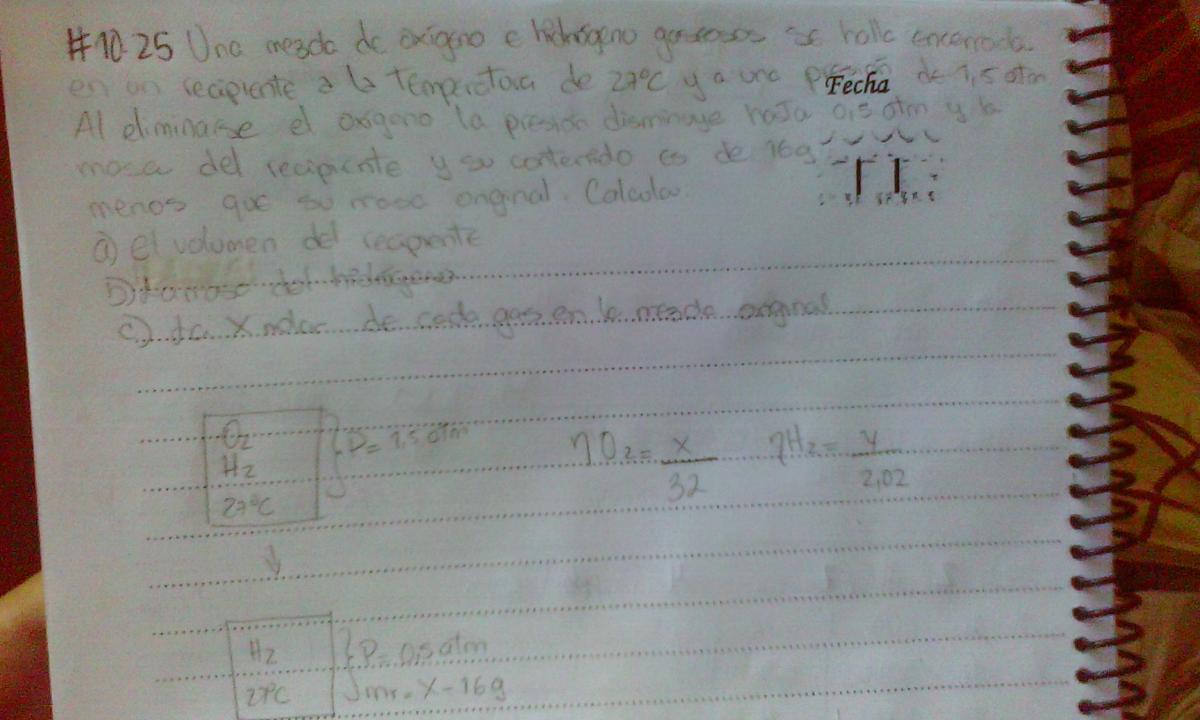 #10.25 Una mezcla de oxígeno e hidrógeno gaseosos se halla encerrada
en un recipiente a la temperatura de 27°C y a una de 1,5 atm
Fecha
Al eliminarse el oxígeno la presión disminuye hasta 0,5 atm y la
masa del recipiente y su contenido es de 16g
menos que su masa original. Calcula:
a) el volumen del recipiente
b) La masa del hidrógeno
c) La X molar de cada gas en la mezcla original
O2
H2
27°C
P= 1,5 atm
ηO2= x/32
ηH2= y/2,02
↓
H2
27°C
P= 0,5 atm
X-16g